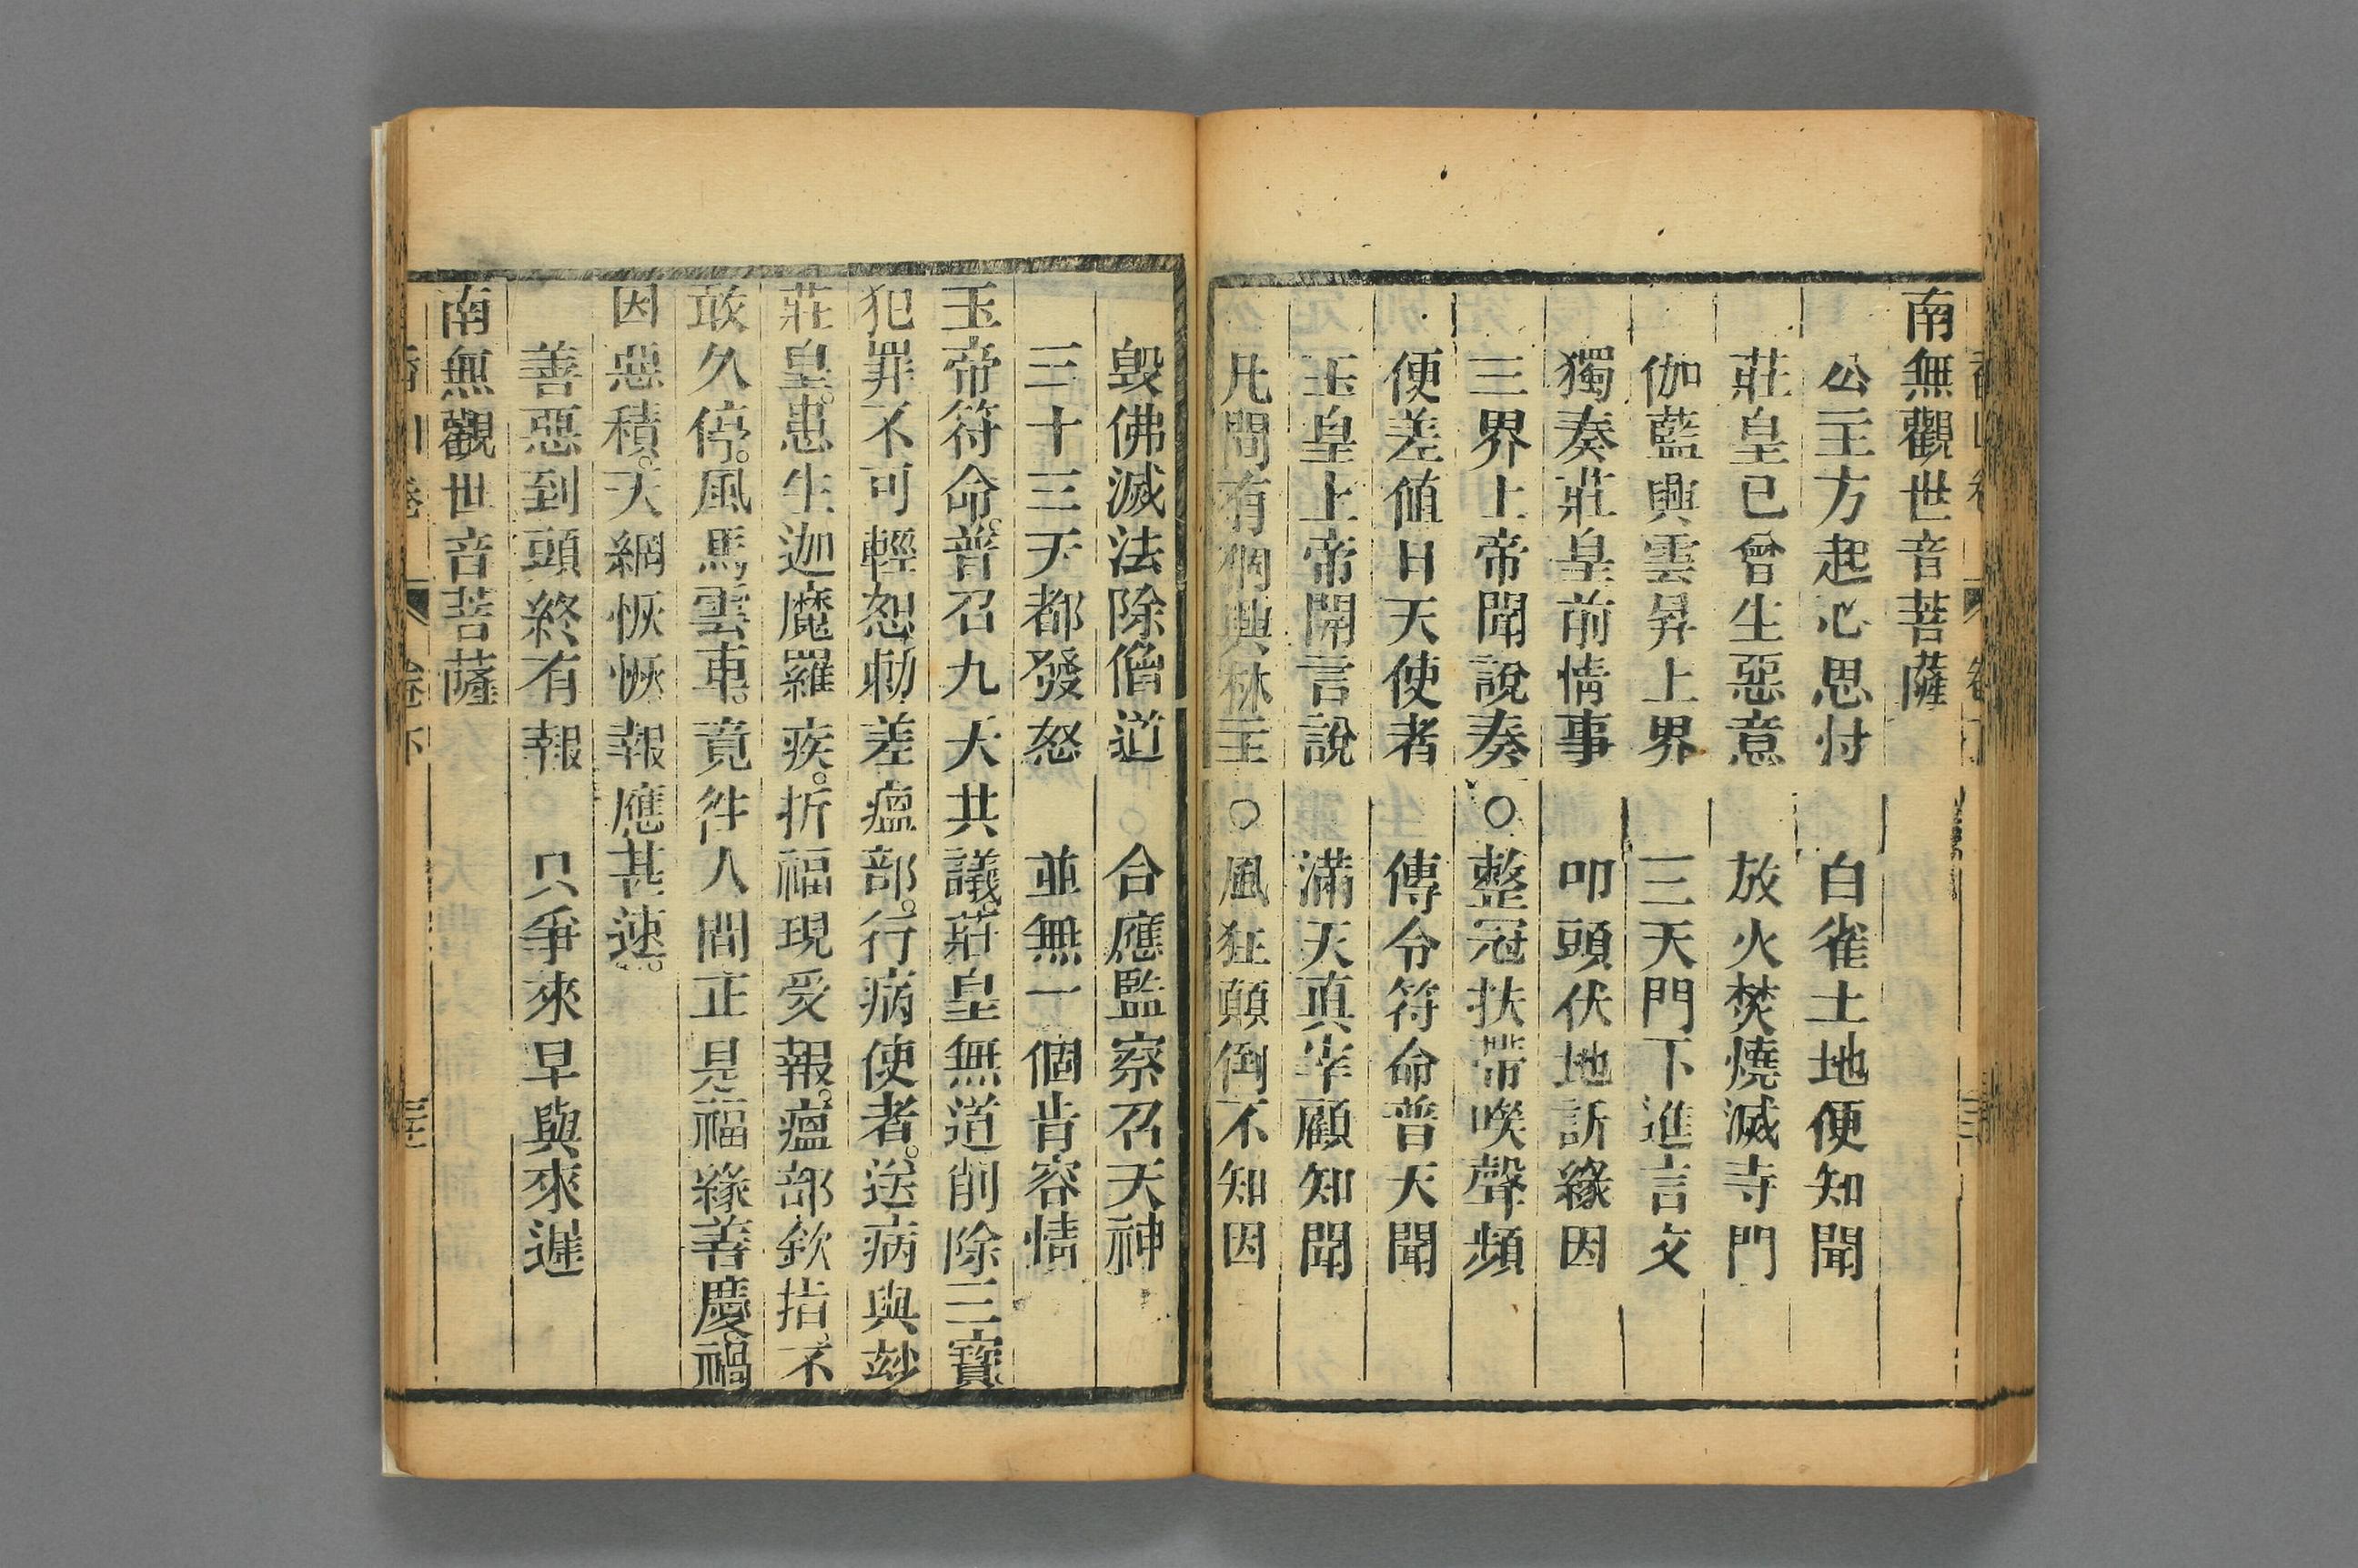 南無觀世音菩薩
公主方起心思忖 白雀土地便知聞
莊皇已曾生惡意 放火焚燒滅寺門
伽藍興雲昇上界 三天門下進言文
獨奏莊皇前情事 叩頭伏地訴緣因
三界上帝聞說奏○整冠扶帶喚聲頻
便差值日天使者 傳令符命普天聞
玉皇上帝開言說 滿天眞宰顧知聞
凡間有個興林主○風狂顛倒不知因
毀佛滅法除僧道○合應監察召天神
三十三天都發怒 並無一個肯容情
玉帝符命。普召九天共議。莊皇無道削除三寶。
犯罪不可輕恕勅差瘟部。行病使者。送病與玅
莊皇。患生迦魔羅疾。折福現受報。瘟部欽指、不
敢久停。風馬雲車。竟徃人間正是福緣善慶。禍
因惡積。天網恢恢報應甚速。
善惡到頭終有報○只爭來早與來遲
南無觀世音菩薩
香山卷 卷下